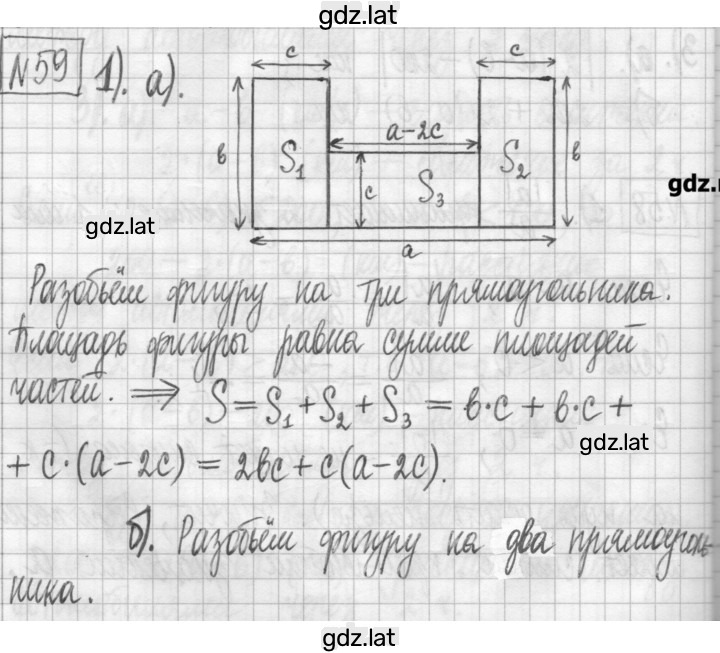 gdz.lat
№59 1). а).
c c
в a-2c в
S₁ S₂
c S₃
gdz.
gdz.lat
a
Разобьём фигуру на три прямоугольника.
Площадь фигуры равна сумме площадей
частей. ⟹ S = S₁ + S₂ + S₃ = в·c + в·c +
gdz.lat
+ c·(a-2c) = 2вc + c(a-2c).
б). Разобьём фигуру на два прямоуголь-
ника.
gdz.lat